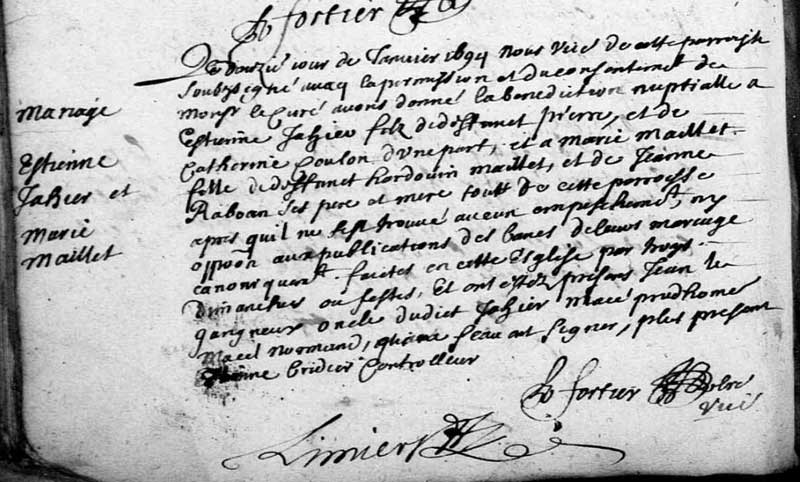 fortier
jour de Janvier 1694 nous vic. de cette parroisse
soubzsigné avecq la permission et du consentement de
Monsr le Curé avons donné la benediction nuptialle a
Estienne Jahier filz de deffunct pierre, et de
Catherine Coulon d'vne part, et a Marie Maillet
fille de deffunct hardouin Maillet, et de Jeanne
Raboan ses pere et mere toutt de cette parroisse
apres qu'il ne sest trouvé aucun empeschemt, ny
oppoon aux publications des bancs de leurs mariage
canoniquemt faictes en cette Esglise par troys
dimanches ou festes, Et ont estez presens Jean le
oncle dudict Jahier Macé prudhomme
normand, seavent signer, plus present
bridier Controlleur
Mariage
Estienne
Jahier et
Marie
Maillet
fortier
vic
Limiers